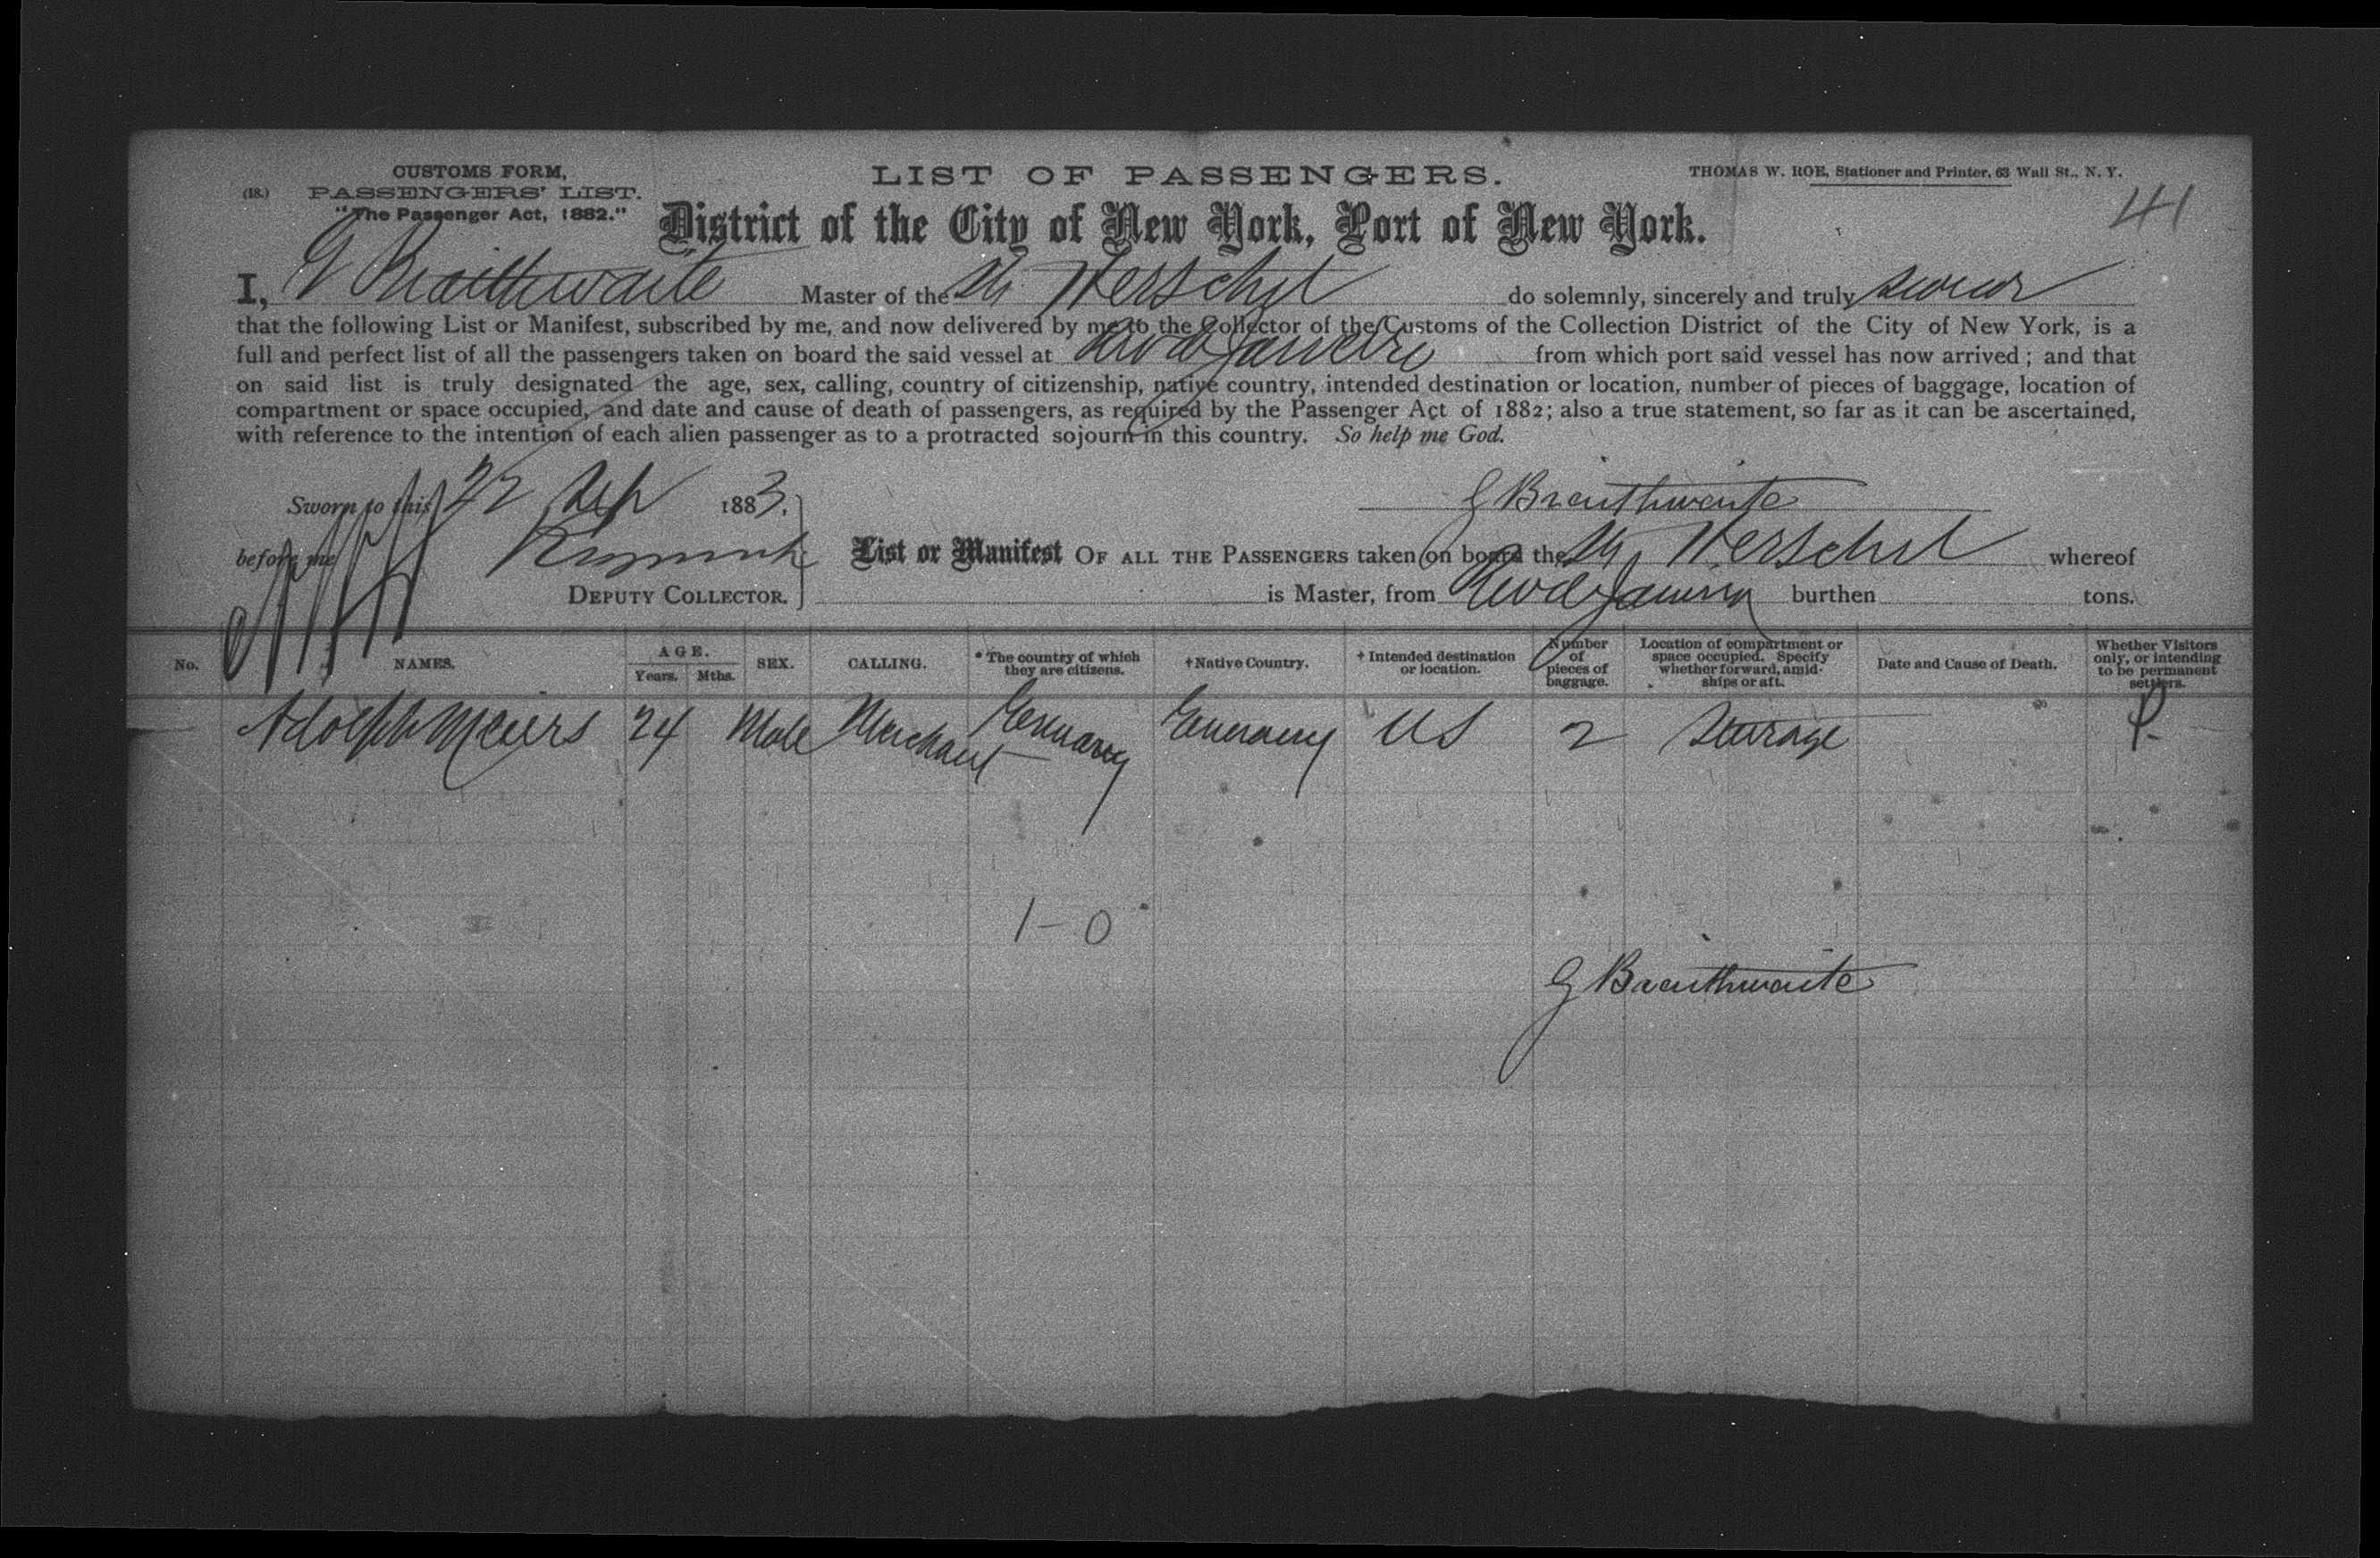 CUSTOMS FORM,
(18.) PASSENGERS' LIST.
"The Passenger Act, 1882."
LIST OF PASSENGERS.
THOMAS W. ROE, Stationer and Printer, 63 Wall St., N. Y.
41
District of the City of New York, Port of New York.
I, G Braithwaite Master of the Str Herschel do solemnly, sincerely and truly swear
that the following List or Manifest, subscribed by me, and now delivered by me to the Collector of the Customs of the Collection District of the City of New York, is a
full and perfect list of all the passengers taken on board the said vessel at Rio de Janeiro from which port said vessel has now arrived; and that
on said list is truly designated the age, sex, calling, country of citizenship, native country, intended destination or location, number of pieces of baggage, location of
compartment or space occupied, and date and cause of death of passengers, as required by the Passenger Act of 1882; also a true statement, so far as it can be ascertained,
with reference to the intention of each alien passenger as to a protracted sojourn in this country. So help me God.
Sworn to this 22 Sep 1883,
G Braithwaite
before me
List or Manifest OF ALL THE PASSENGERS taken on board the Str Herschel whereof
DEPUTY COLLECTOR.
is Master, from Rio de Janeiro burthen tons.
No. NAMES. AGE. Years. Mths. SEX. CALLING. * The country of which they are citizens. † Native Country. † Intended destination or location. Number of pieces of baggage. Location of compartment or space occupied. Specify whether forward, amidships or aft. Date and Cause of Death. Whether Visitors only, or intending to be permanent settlers.
Adolph Meiers 24 Male Merchant Germany Germany US 2 Steerage P.
1-0
G Braithwaite